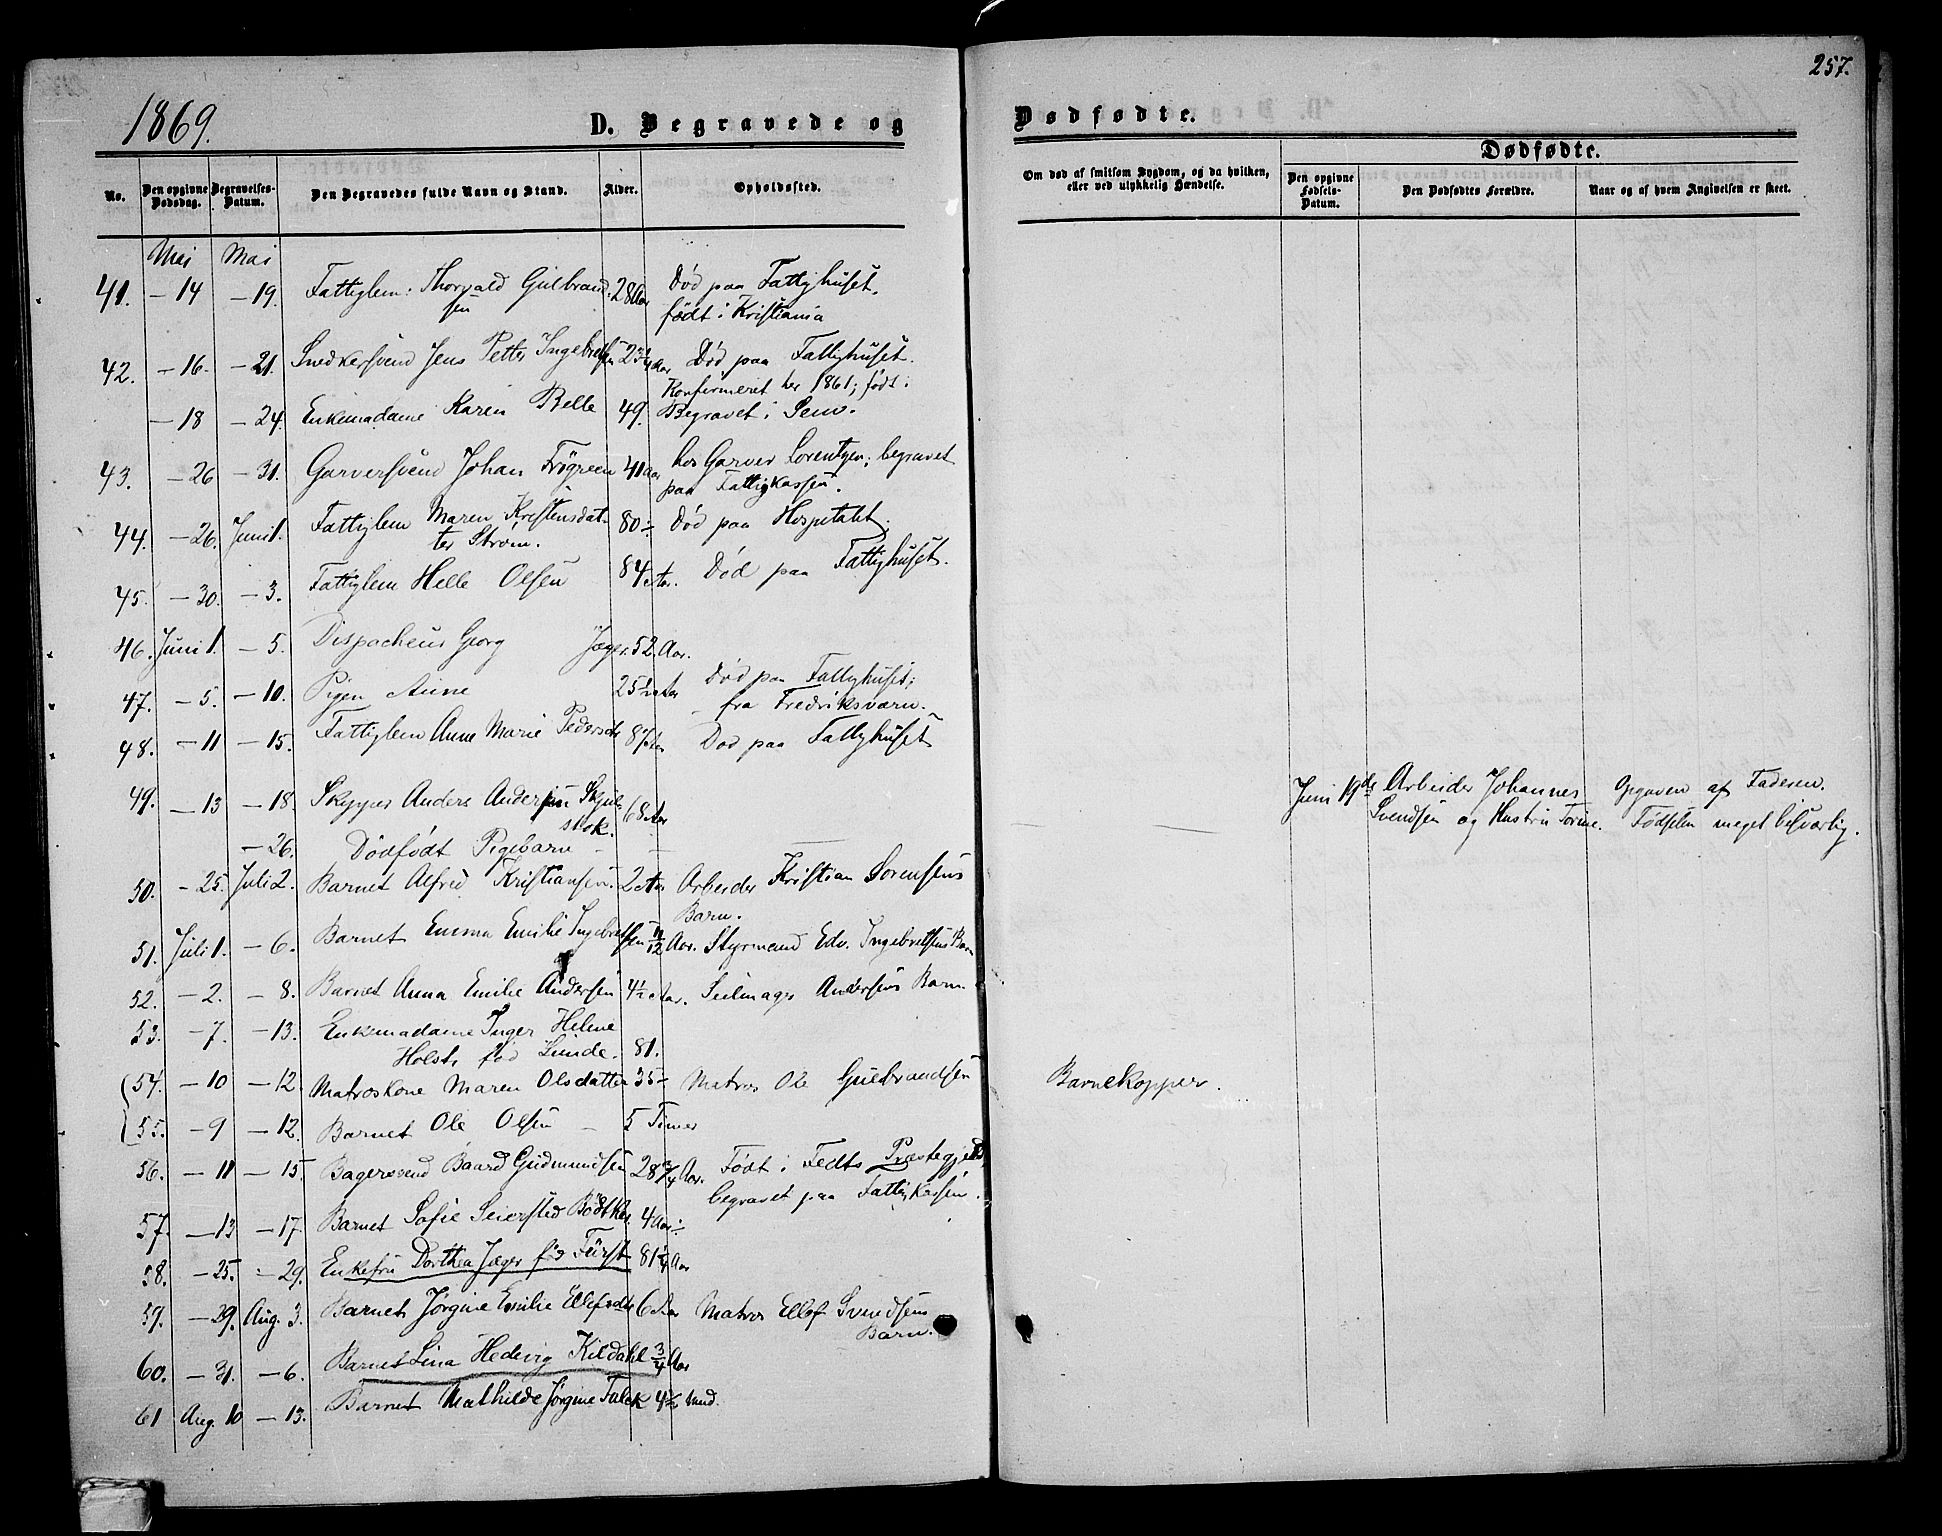 257.
1869.
D. Begravede og
Dødfødte.
No.
Den opgivne Dødsdag.
Begravelses-Datum.
Den Begravedes fulde Navn og Stand.
Alder.
Opholdssted.
Om død af smitsom Sygdom, og da hvilken, eller ved ulykkelig Hændelse.
Dødfødte.
Den opgivne Fødsels-Datum.
Den Dødfødtes Forældre.
Naar og af hvem Angivelsen er skeet.
Mai Mai
41. — 14 — 19. Fattiglem: Thorvald Gulbrand- 28 Aar Død paa Fattighuset,
sen født i Kristiania
42. — 16. — 21. Snedkersvend Jens Petter Ingebretsen Aar Død paa Fattighuset.
Konfirmeret her 1861; født i
— 18 — 24. Enkemadame Karen Belle 49. Begravet i Sem.
43. — 26 — 31. Garversvend Johan Frögreen 41 Aar hos Garver Lorentzen; begravet
paa Fattigkassen.
44. — 26. Juni 1. Fattiglem Maren Kristensdat- 80 - Död paa Hospitalet.
ter Ström.
45. — 30. — 3. Fattiglem Helle Olsen 84 Aar. Död paa Fattighuset.
46. Juni 1. — 5. Dispacheur Georg Jæger. 52. Aar.
47. — 5. — 10. Pigen Anne 25 1/2 Aar Död paa Fattighuset;
fra Fredriksværn.
48. — 11 — 15. Fattiglem Anne Marie Pedersdtr Aar Död paa Fattighuset
49. — 13 — 18. Skipper Anders Andersen 68 Aar
— 26. Dödfödt Pigebarn — — — —
Juni 19de Arbeider Johannes Opgaven af Faderen.
Svendsen og Hustru Torine. Födselen meget besværlig.
50. — 25. Juli 2. Barnet Alfred Kristiansen. 2 Aar Arbeider Kristian Sorensens
Barn.
51. Juli 1. — 6. Barnet Emma Emilie Ingebretsen 11/12 Aar. Styrmand Edv. Ingebretsens Barn
52. — 2. — 8. Barnet Anna Emilie Andersen 4 1/2 Aar. Seilmager Andersens Barn
53. — 7. — 13. Enkemadame Inger Helene
Holst, fød Linde. 81.
54. — 10 — 12 Matroskone Maren Olsdatter 35 — Matros Ole Gulbrandsen Barnekopper.
55. — 9 — 12. Barnet Ole Olsen — 5 Timer
56. — 11 — 15 Bagersvend Baard Gudmundsen 28 3/4 Aar. Födt i Fedts Præstegjeld,
begravet paa Fattigkassen.
57. — 13 — 17. Barnet Sofie Seiersted Bödtker 4 Aar
58. — 25. — 29. Enkefru Dorthea Jæger fød Fürst 81 1/4 Aar
59. — 29. Aug. 3. Barnet Jørgine Emilie Ellefsdtr 6 Aar Matros Ellef Svendsens
Barn.
60. — 31. — 6. Barnet Lina Hedevig Kildahl 3/4 Aar
61 Aug. 10 — 13. Barnet Mathilde Jørgine Falck 4 1/2 Mnd.